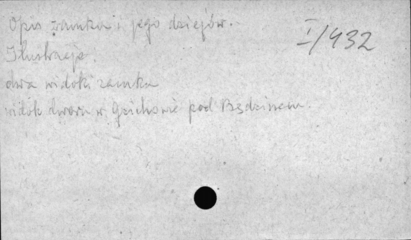 Opis zamku i jego dziejów.
I/432
Ilustracje.
dwa widoki zamku
widok dworu w Gzichowie pod Będzinem.